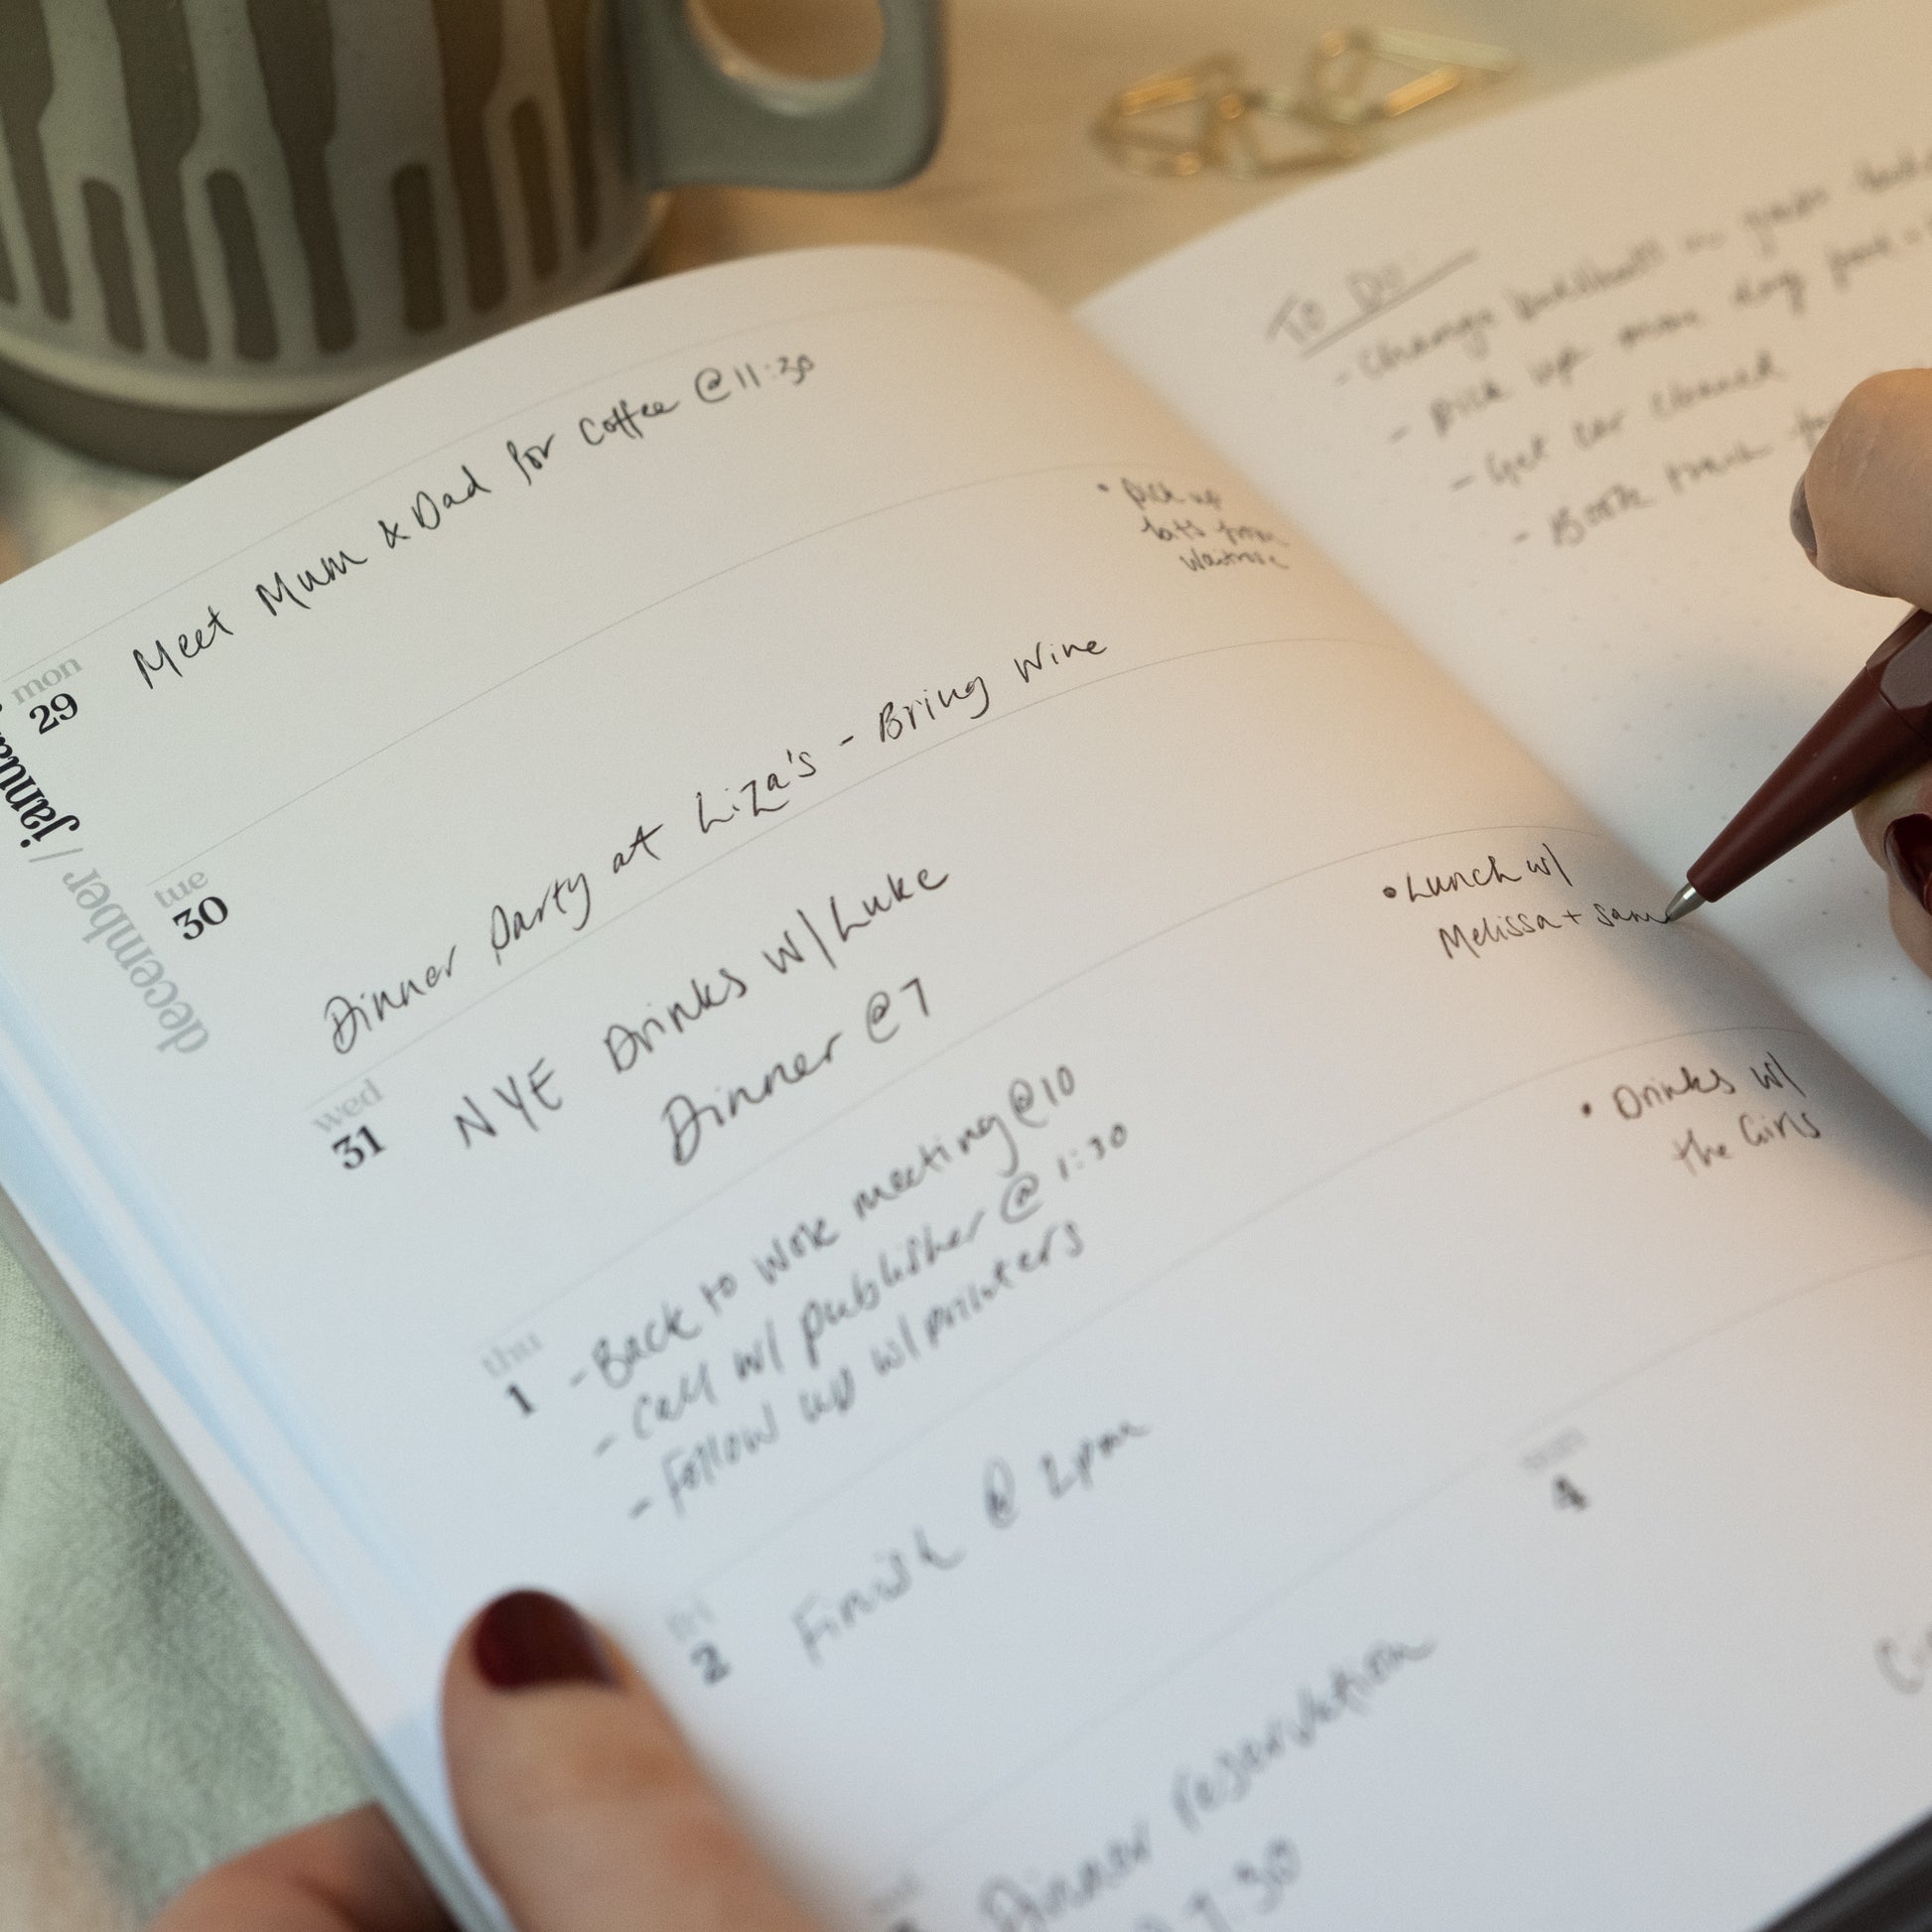 december / januar
mon
29
Meet Mum & Dad for Coffee @ 11:30
tue
30
• pick up
bits from
Waitrose
Dinner Party at Liza's - Bring Wine
wed
31
NYE Drinks w/ Luke
Dinner @ 7
thu
1
- Back to work meeting @ 10
- Call w/ publisher @ 1:30
- Follow up w/ printers
• Lunch w/
Melissa + Sam
fri
2
Finish @ 2pm
• Drinks w/
the Girls
Dinner reservation
7:30
sun
4
TO DO:
- Change
- Pick up more dog
- Get car cleaned
- Book